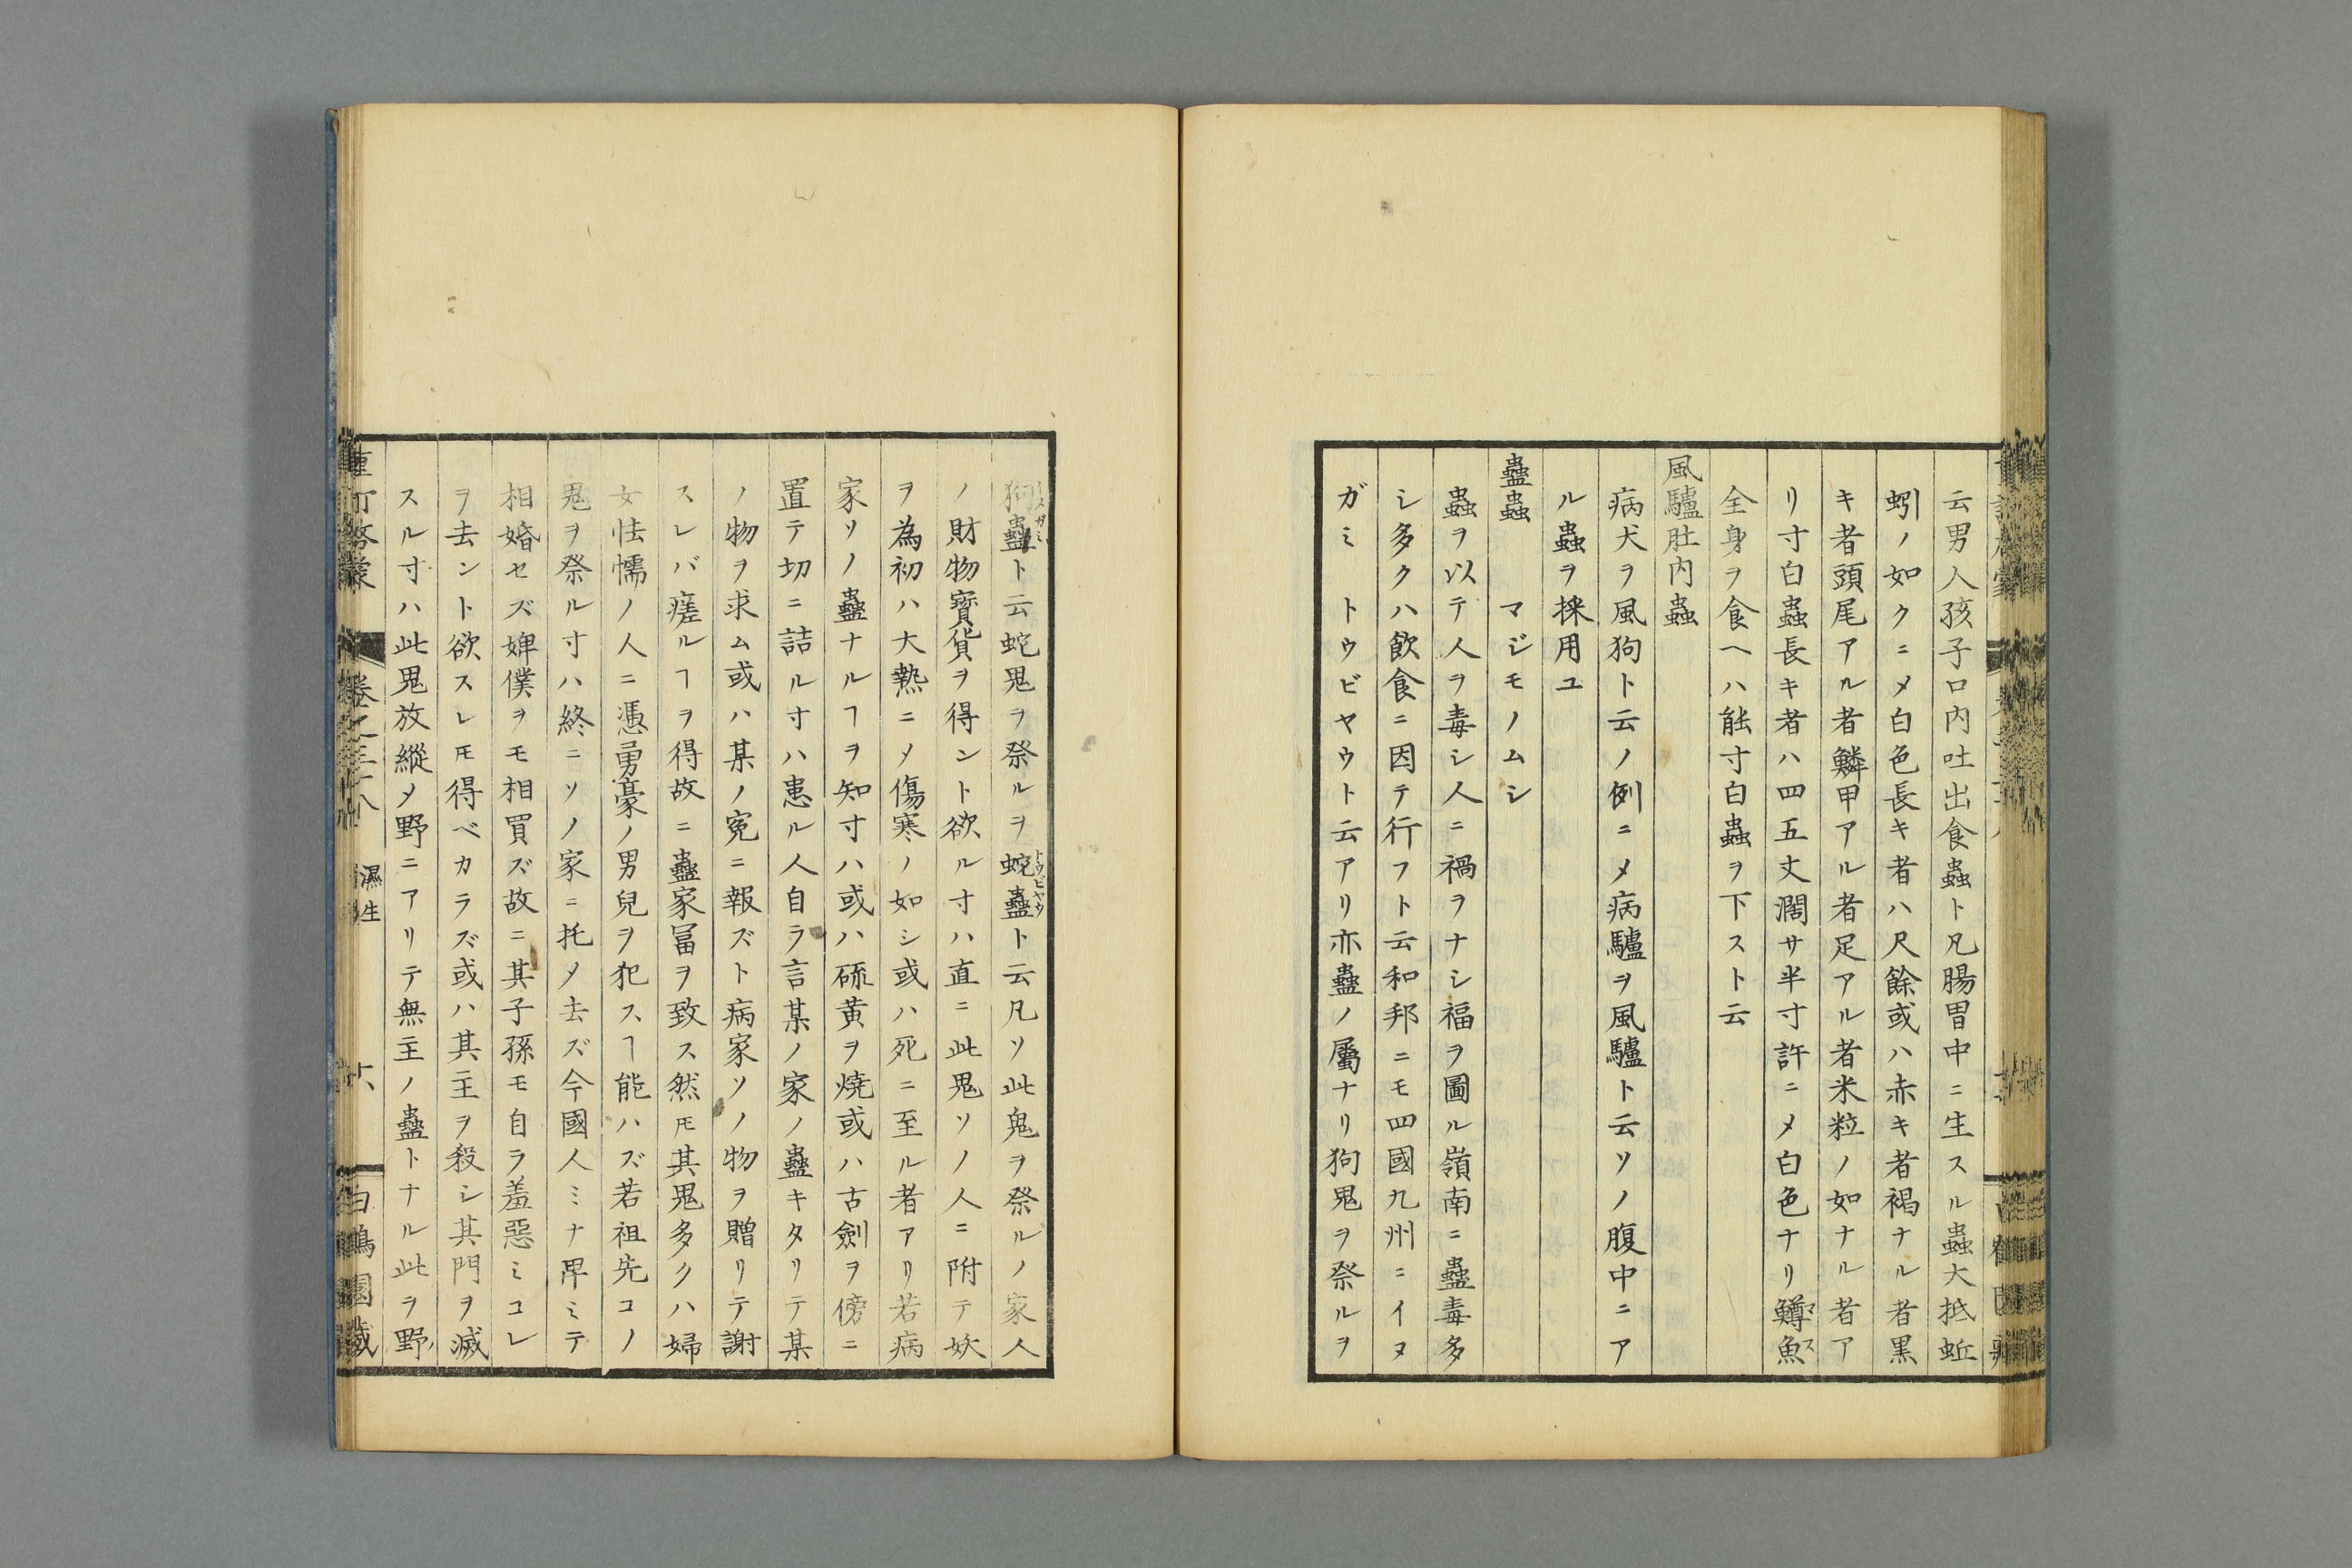 云男人孩子口内吐出食蟲ト凡腸胃中ニ生スル蟲大抵蚯
蚓ノ如クニメ白色長キ者ハ尺餘或ハ赤キ者褐ナル者黒
キ者頭尾アル者鱗甲アル者足アル者米粒ノ如ナル者ア
リ寸白蟲長キ者ハ四五丈濶サ半寸許ニメ白色ナリ鱒魚
全身ヲ食ヘハ能寸白蟲ヲ下スト云
風驢肚内蟲
病犬ヲ風狗ト云ノ例ニメ病驢ヲ風驢ト云ソノ腹中ニア
ル蟲ヲ採用ユ
蠱蟲 マジモノムシ
蟲ヲ以テ人ヲ毒シ人ニ禍ヲナシ福ヲ圖ル嶺南ニ蠱毒多
シ多クハ飲食ニ因テ行フト云和邦ニモ四國九州ニイヌ
ガミ トウビヤウト云アリ亦蠱ノ屬ナリ狗鬼ヲ祭ルヲ
狗蠱ト云蛇鬼ヲ祭ルヲ蛇蠱トウビヤウト云凡ソ此鬼ヲ祭ルノ家人
ノ財物寶貨ヲ得ント欲ル寸ハ直ニ此鬼ソノ人ニ附テ妖
ヲ為初ハ大熱ニメ傷寒ノ如シ或ハ死ニ至ル者アリ若病
家ソノ蠱ナルヿヲ知寸ハ或ハ硫黄ヲ燒或ハ古劍ヲ傍ニ
置テ切ニ詰ル寸ハ患ル人自ラ言某ノ家ノ蠱キタリテ某
ノ物ヲ求ム或ハ某ノ寃ニ報ズト病家ソノ物ヲ贈リテ謝
スレバ瘥ルヿヲ得故ニ蠱家冨ヲ致ス然𪜈其鬼多クハ婦
女怯懦ノ人ニ憑勇豪ノ男兒ヲ犯スヿ能ハズ若祖先コノ
鬼ヲ祭ル寸ハ終ニソノ家ニ托メ去ズ今國人ミナ卑ミテ
相婚セズ婢僕ヲモ相買ズ故ニ其子孫モ自ラ羞惡ミコレ
ヲ去ント欲スレ𪜈得ベカラズ或ハ其主ヲ殺シ其門ヲ滅
スル寸ハ此鬼放縱メ野ニアリテ無主ノ蠱トナル此ヲ野